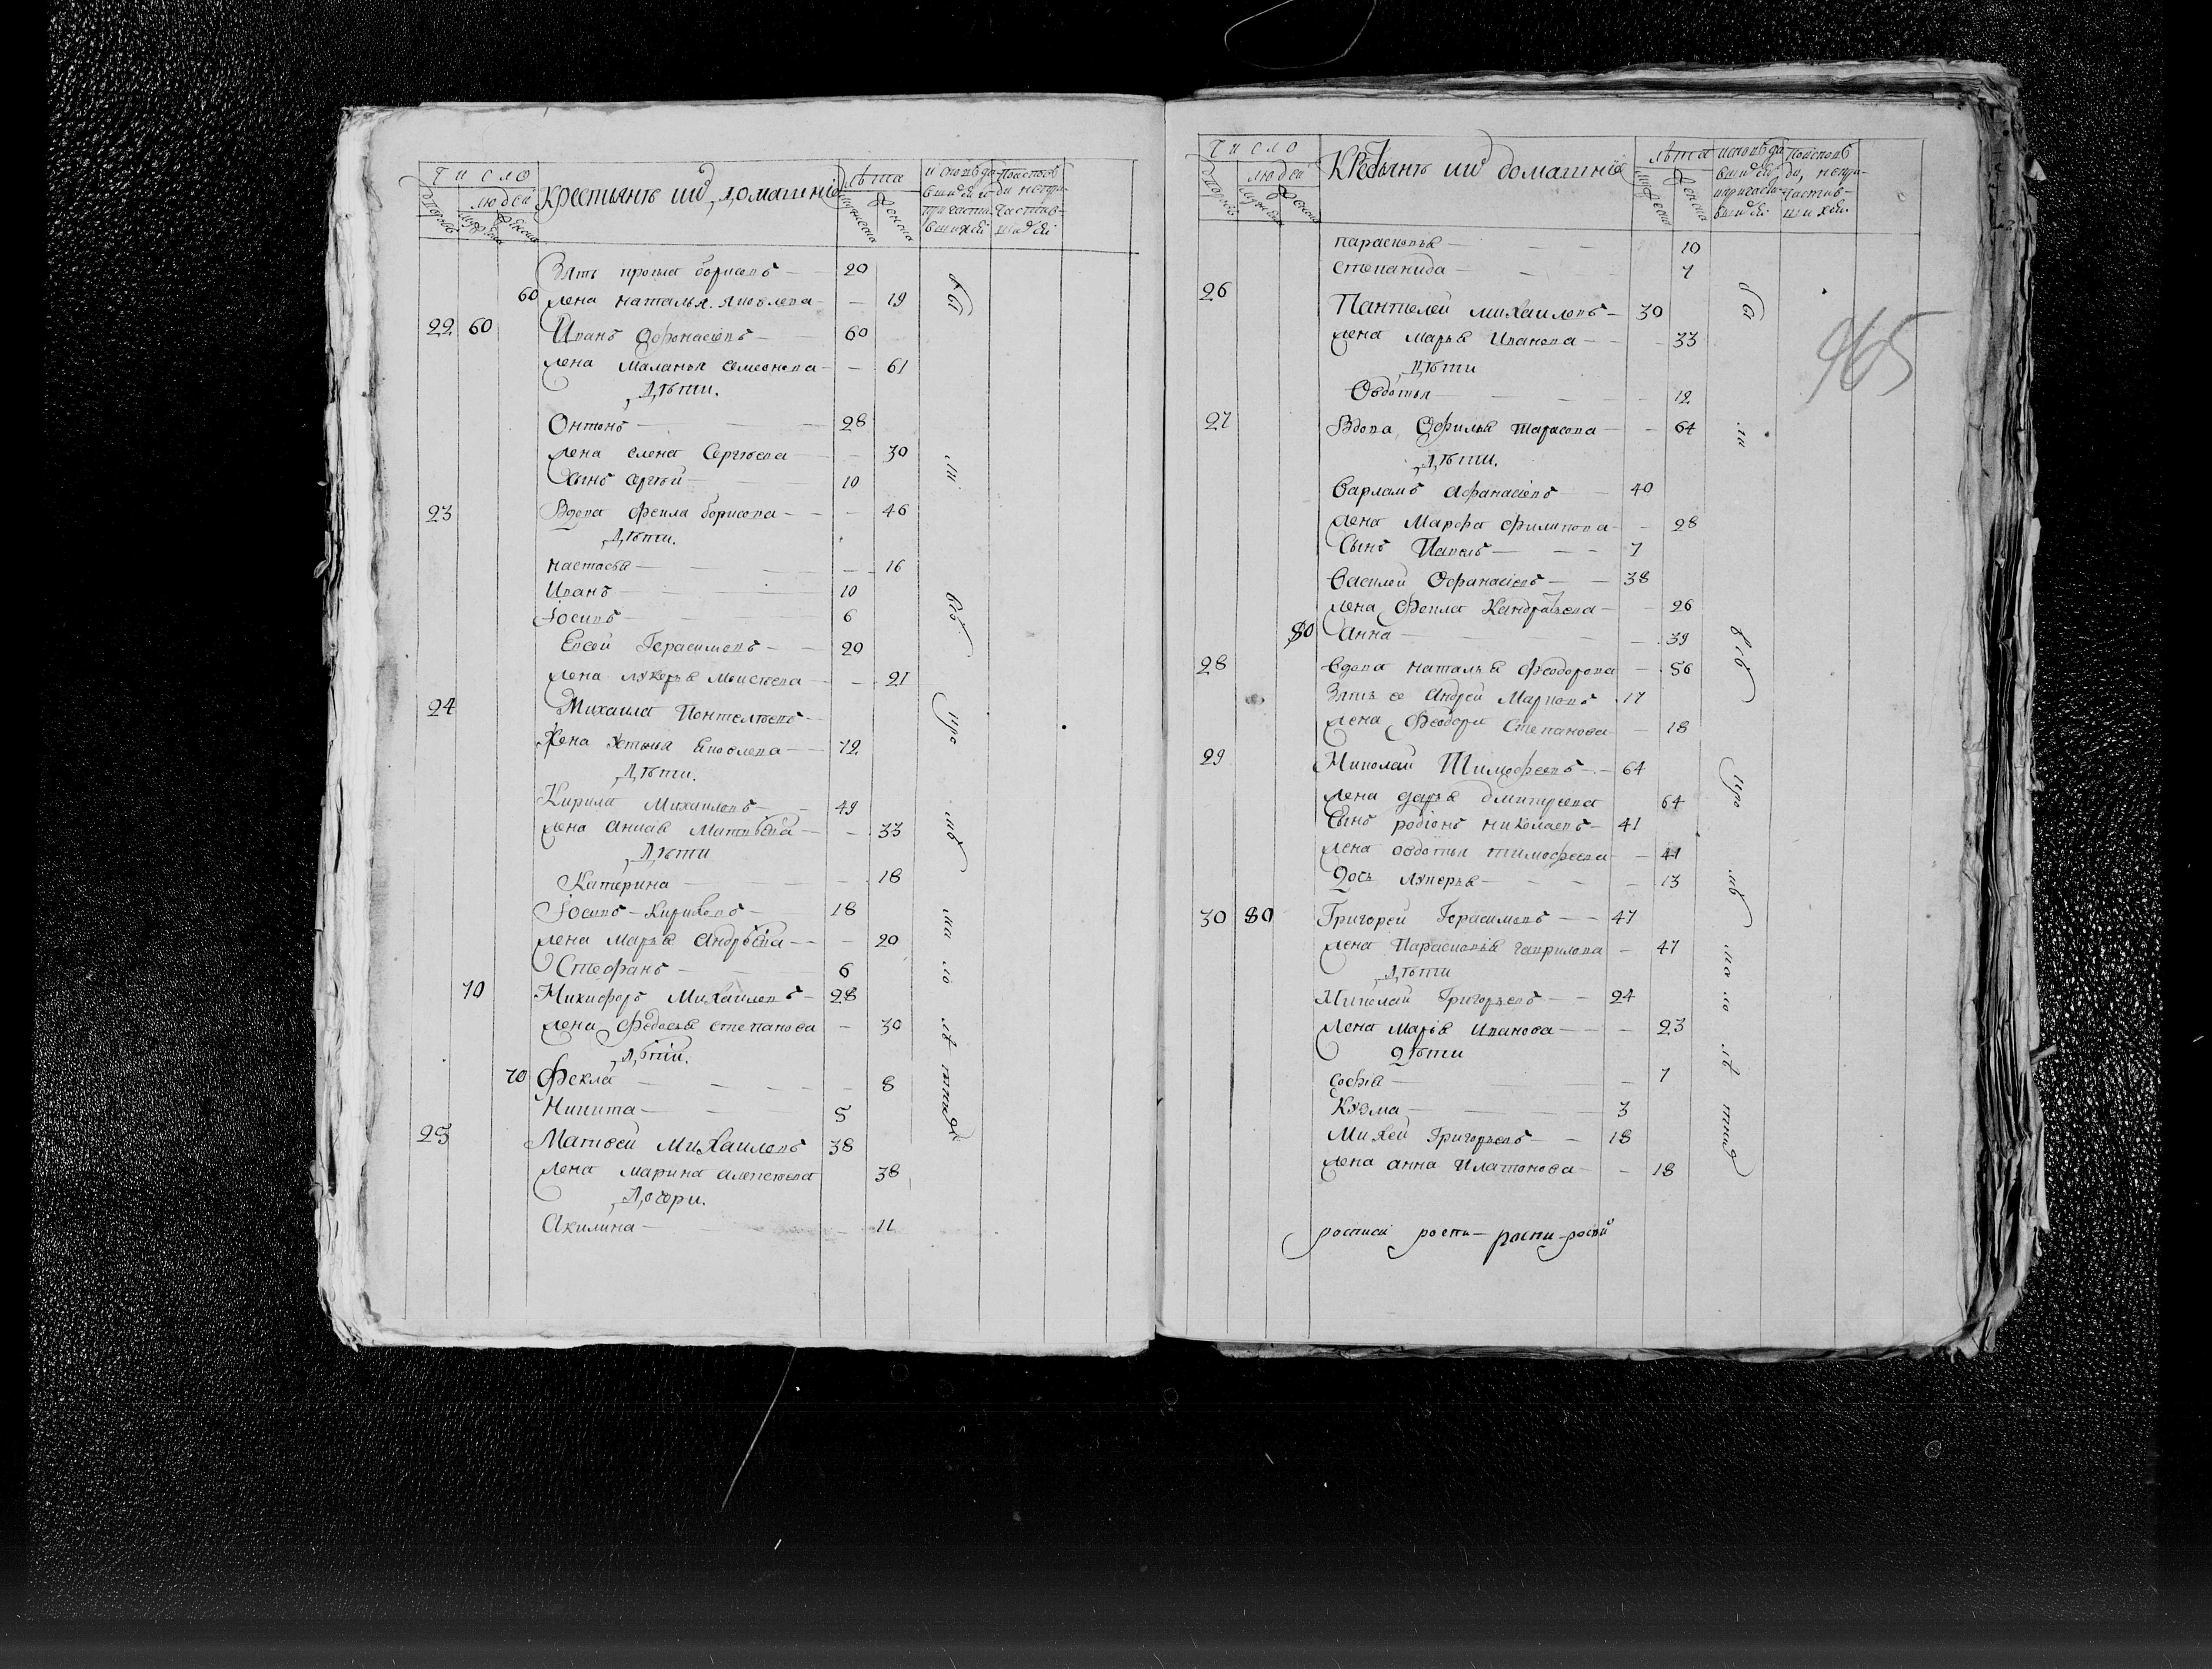 Число
Крестьянъ ихъ домашнiе
лѣта
исповѣдавшихся и причастившихся
по исповѣди непричастившихся
людей
дворовъ
мужеска
женска
мужеска
женска
Зять проκла борисовъ — 20
60 жена наталья яковлева — 19
22 60 Иванъ Офонасiевъ — 60
жена Маланья семеонова — 61
Дѣти.
Онтонъ — 28
жена елена Сергѣева — 30
Сынъ сергѣй — 10
23 Вдова фекла борисова — 46
Дѣти.
настасья — 16
Иванъ — 10
Iосипъ — 6
Евсей Герасимовъ — 20
жена лукерья Моисѣева — 21
24 Михаила Понтелѣевъ —
Жена Устинья Ековлева — 72
Дѣти.
Кирила Михаиловъ — 49
жена анисья Матвѣева — 33
Дѣти
Катерина — 18
Iосипъ Кириловъ — 18
жена Марья Андрѣева — 20
Стефанъ — 6
70 Никифоръ Михаиловъ — 28
жена Федосья степанова — 30
Дѣти.
70 Фекла — 8
Никита — 5
25 Матвей Михаиловъ 38
жена марина алексѣева 38
Дочери.
Акилина — 11
вси
ли
въ
про
шв
ма ло лѣ тныхъ
Число
Крестьянъ ихъ домашнiе
лѣта
исповѣдавшихся и причастившихся
по исповѣди, непричастившихся
людей
дворовъ
мужеска
женска
мужеска
женска
965
парасковья — 10
степанида — 7
26 Пантелей михаиловъ — 30
жена марья Иванова — 33
Дѣти
Овдотья — 12
27 Вдова Офимья тарасова — 64
Дѣти.
Варламъ афанасiевъ — 40
жена Марфа филипова — 28
Сынъ Павелъ — 7
Василей Офанасiевъ — 38
жена Фекла Кандратьева — 26
80 Анна — 39
28 Вдова наталья феодорова — 56
Зять ее Андрей Марковъ 17
жена Феодора Степанова — 18
29 Николай Тимофеевъ — 64
жена дарья дмитреева 64
Сынъ родiонъ николаевъ — 41
жена овдотья тимофеева — 41
Дочь лукерья — 13
30 80 Григорей Герасимовъ — 47
жена Парасковья гаврилова — 47
Дѣти
Николай Григорьевъ — 24
Жена Марья Иванова — 23
Дѣти
Софья — 7
Кузма — 3
Михей Григорьевъ — 18
жена анна Платонова — 18
росписи